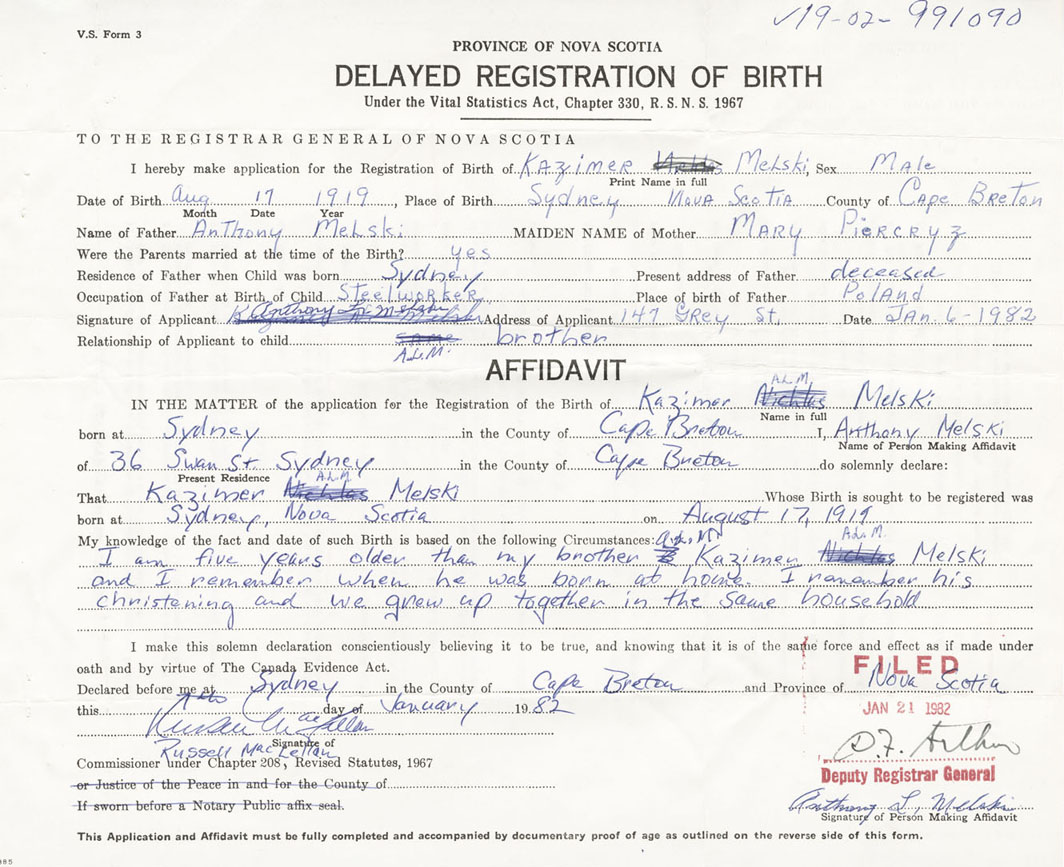 ✓19-02-991090
V.S. Form 3
PROVINCE OF NOVA SCOTIA
DELAYED REGISTRATION OF BIRTH
Under the Vital Statistics Act, Chapter 330, R.S.N.S. 1967
TO THE REGISTRAR GENERAL OF NOVA SCOTIA
I hereby make application for the Registration of Birth of KAZIMER MELSKI, Sex MALE
Print Name in full
Date of Birth Aug 17 1919, Place of Birth Sydney NOVA SCOTIA County of CAPE BRETON
Month Date Year
Name of Father ANTHONY MELSKI MAIDEN NAME of Mother MARY PIERCRYZ
Were the Parents married at the time of the Birth? yes
Residence of Father when Child was born Sydney Present address of Father deceased
Occupation of Father at Birth of Child STEELWORKER Place of birth of Father POLAND
Signature of Applicant Anthony Address of Applicant 147 GREY St. Date JAN. 6-1982
Relationship of Applicant to child same brother
A.L.M.
AFFIDAVIT
A.L.M.
IN THE MATTER of the application for the Registration of the Birth of Kazimer Nichlas Melski
Name in full
born at Sydney in the County of Cape Breton I, Anthony Melski
Name of Person Making Affidavit
of 36 Swan St. Sydney in the County of Cape Breton do solemnly declare:
Present Residence A.L.M
That Kazimer Nichlas Melski Whose Birth is sought to be registered was
born at Sydney, Nova Scotia on August 17, 1919
My knowledge of the fact and date of such Birth is based on the following Circumstances: A.L.M. A.L.M.
I am five years older than my brother Kazimer Nichlas Melski
and I remember when he was born at home. I remember his
christening and we grew up together in the same household
I make this solemn declaration conscientiously believing it to be true, and knowing that it is of the same force and effect as if made under
oath and by virtue of The Canada Evidence Act.
FILED
Declared before me at Sydney in the County of Cape Breton and Province of Nova Scotia
this day of January 1982
JAN 21 1982
Russell MacLellan
Signature of
Russell MacLellan
Commissioner under Chapter 208, Revised Statutes, 1967
D.F. Arthur
Deputy Registrar General
or Justice of the Peace in and for the County of
If sworn before a Notary Public affix seal.
Anthony L. Melski
Signature of Person Making Affidavit
This Application and Affidavit must be fully completed and accompanied by documentary proof of age as outlined on the reverse side of this form.